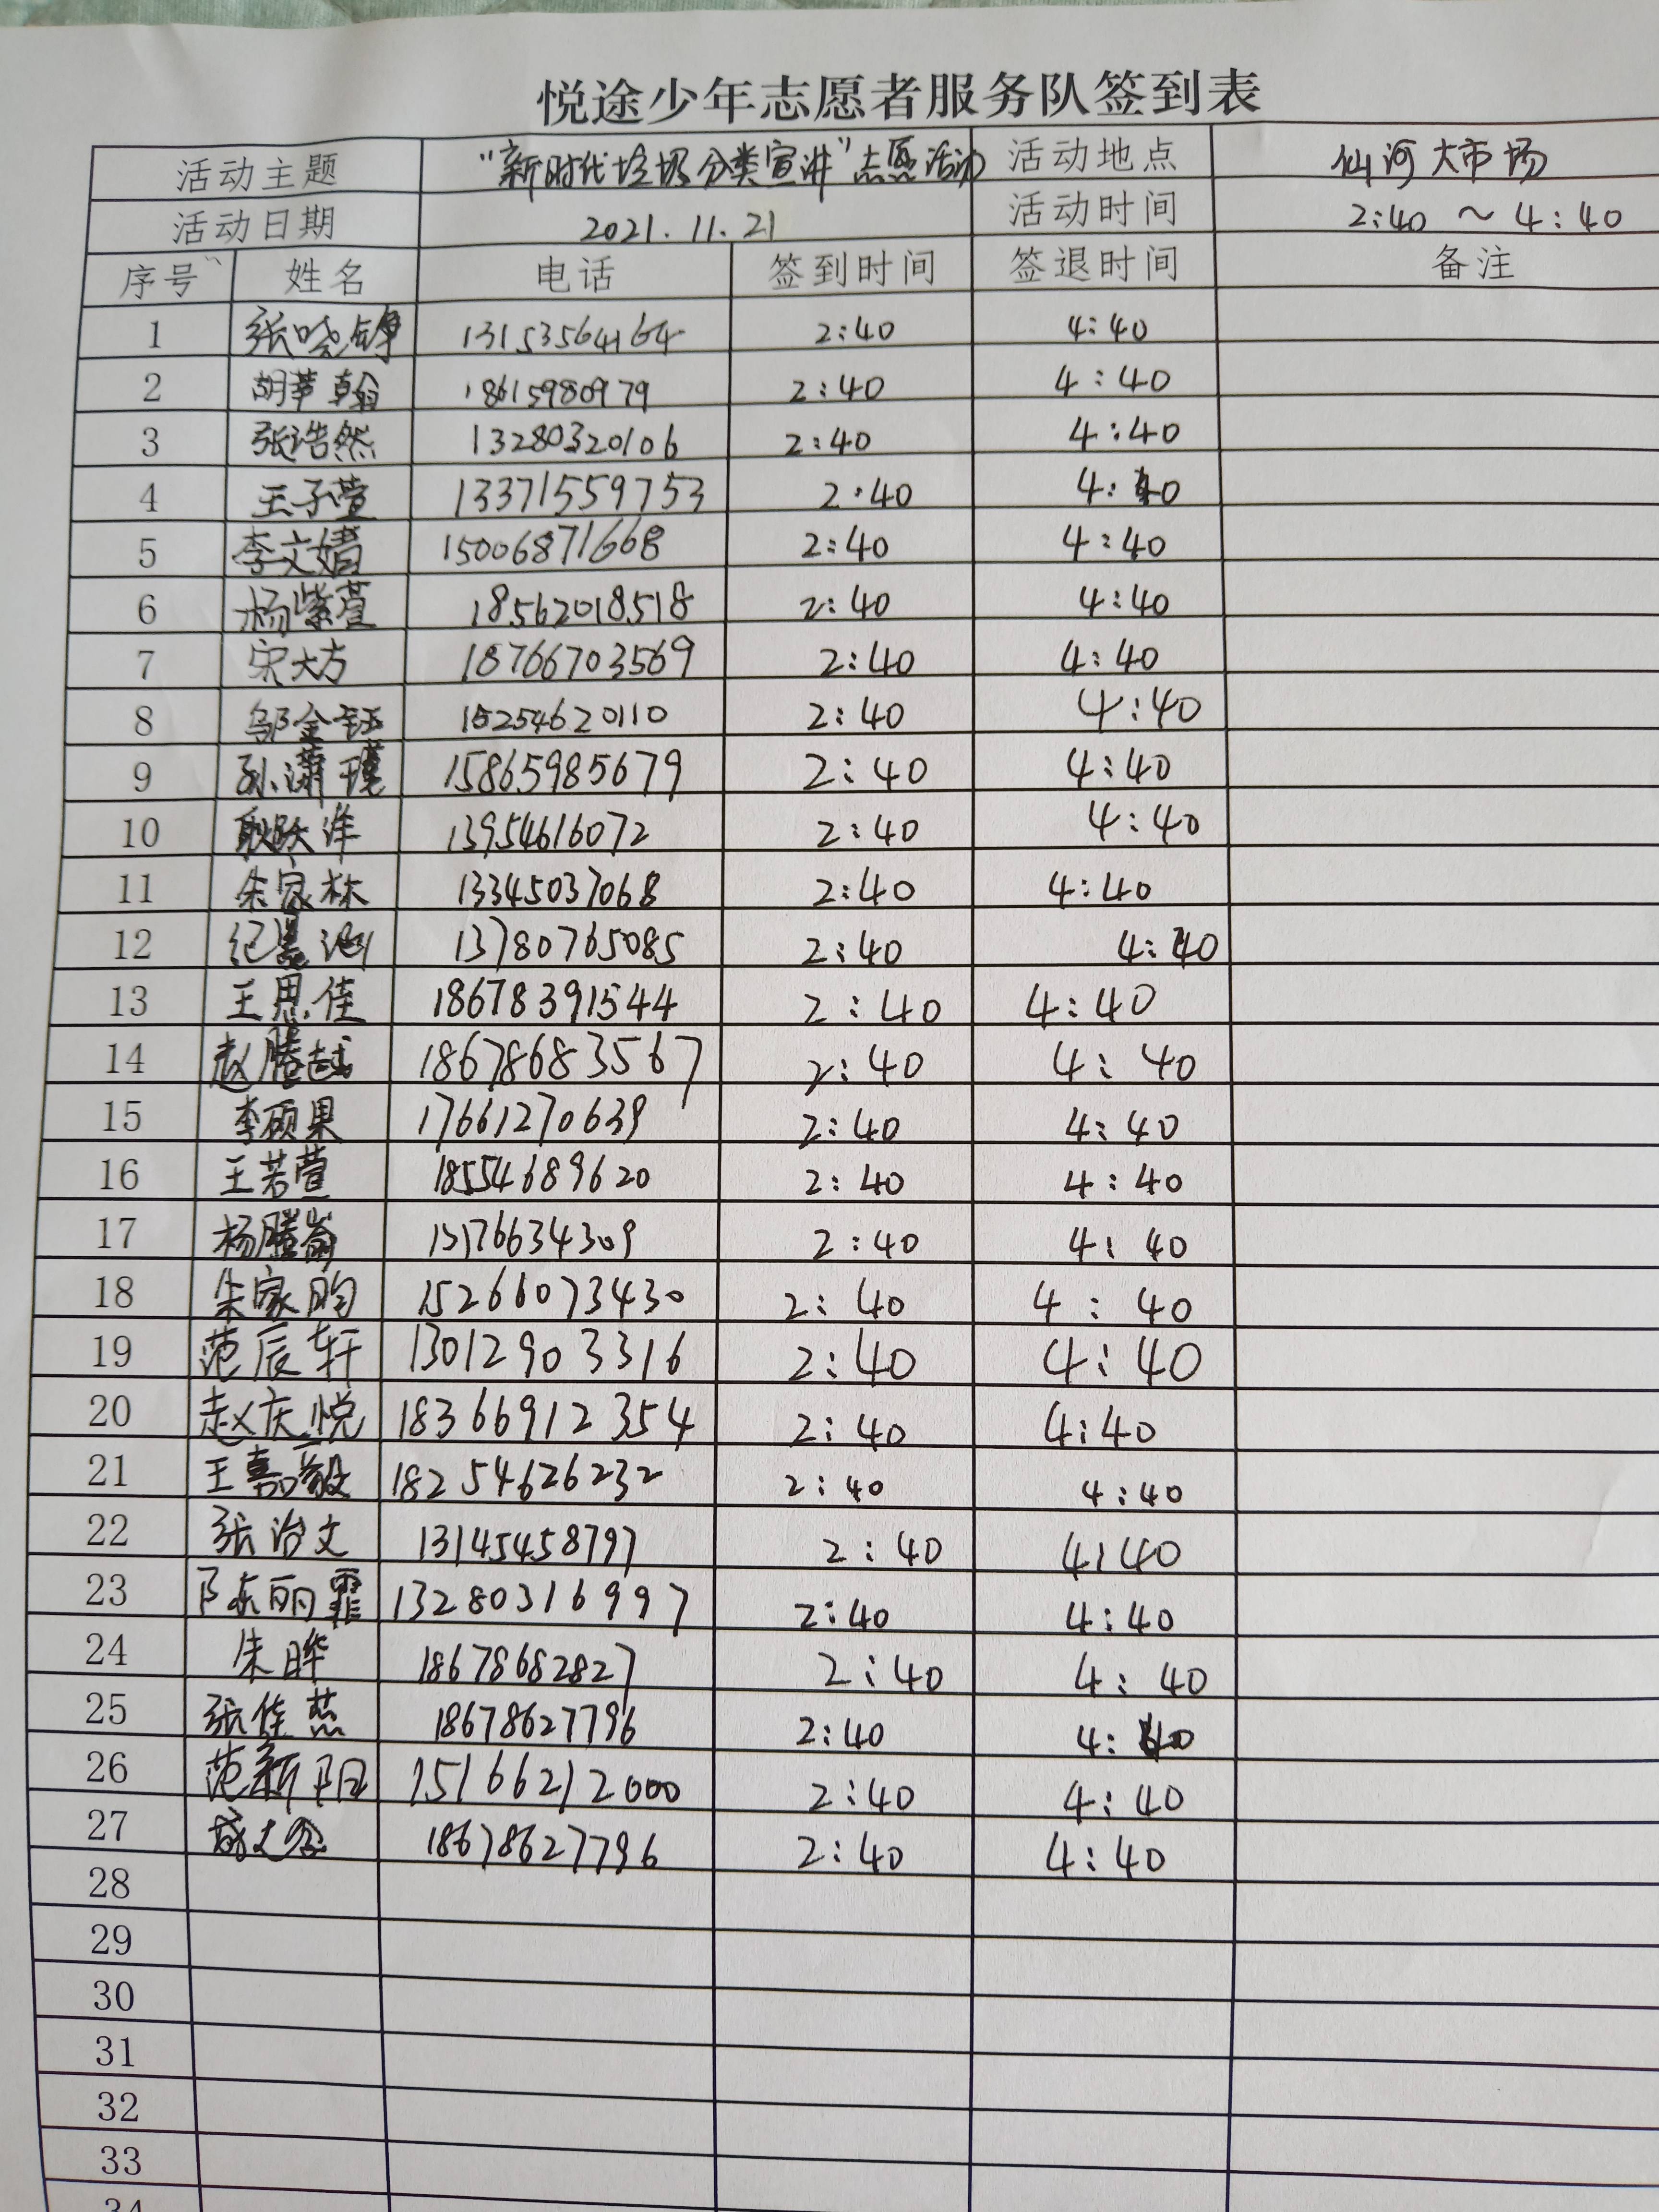 悦途少年志愿者服务队签到表
活动主题 “新时代垃圾分类宣讲”志愿活动 活动地点 仙河大市场
活动日期 2021.11.21 活动时间 2:40 ~ 4:40
序号 姓名 电话 签到时间 签退时间 备注
1 张晓铮 13153564164 2:40 4:40
2 胡苇翰 18615980979 2:40 4:40
3 张浩然 13280320106 2:40 4:40
4 王子萱 13371559753 2:40 4:40
5 李文婧 15006871668 2:40 4:40
6 杨紫萱 18562018518 2:40 4:40
7 宋大方 18766703569 2:40 4:40
8 邹金钰 15254620110 2:40 4:40
9 孙潇瑾 15865985679 2:40 4:40
10 耿跃洋 13954616072 2:40 4:40
11 朱家林 13345037068 2:40 4:40
12 纪 13780765085 2:40 4:40
13 王思佳 18678391544 2:40 4:40
14 赵腾越 18678683567 2:40 4:40
15 李硕果 17661270639 2:40 4:40
16 王若萱 18554689620 2:40 4:40
17 杨腾 2:40 4:40
18 朱家昀 15266073430 2:40 4:40
19 范辰轩 13012903316 2:40 4:40
20 赵庆悦 18366912354 2:40 4:40
21 王嘉毅 18254626232 2:40 4:40
22 张治文 13145458797 2:40 4:40
23 陈丽霏 13280316997 2:40 4:40
24 朱晔 18678682827 2:40 4:40
25 张佳燕 18678627796 2:40 4:40
26 范新阳 15166212000 2:40 4:40
27 18678627796 2:40 4:40
28
29
30
31
32
33
34